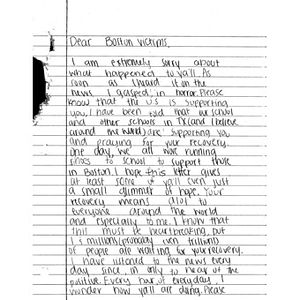 Dear Boston victims,
I am extremely sorry about
what happened to ya'll. As
soon as I heard it on the
news I gasped, in horror. Please
know that the U.S is supporting
you, I have been told that our school
and other schools in TX (and I believe
around the world) are supporting you
and praying for your recovery.
one day, we all wore running
shoes to school to support those
in Boston. I hope this letter gives
at least some of ya'll even just
a small glimmer of hope. Your
recovery means alot to
everyone around the world
and especially to me. I know that
this must be heartbreaking, but
millions (probably even trillions)
of people are waiting for your recovery.
I have listened to the news every
day since, in only to hear of the
positive. Every hour of everyday, I
wonder how yall are doing. Please